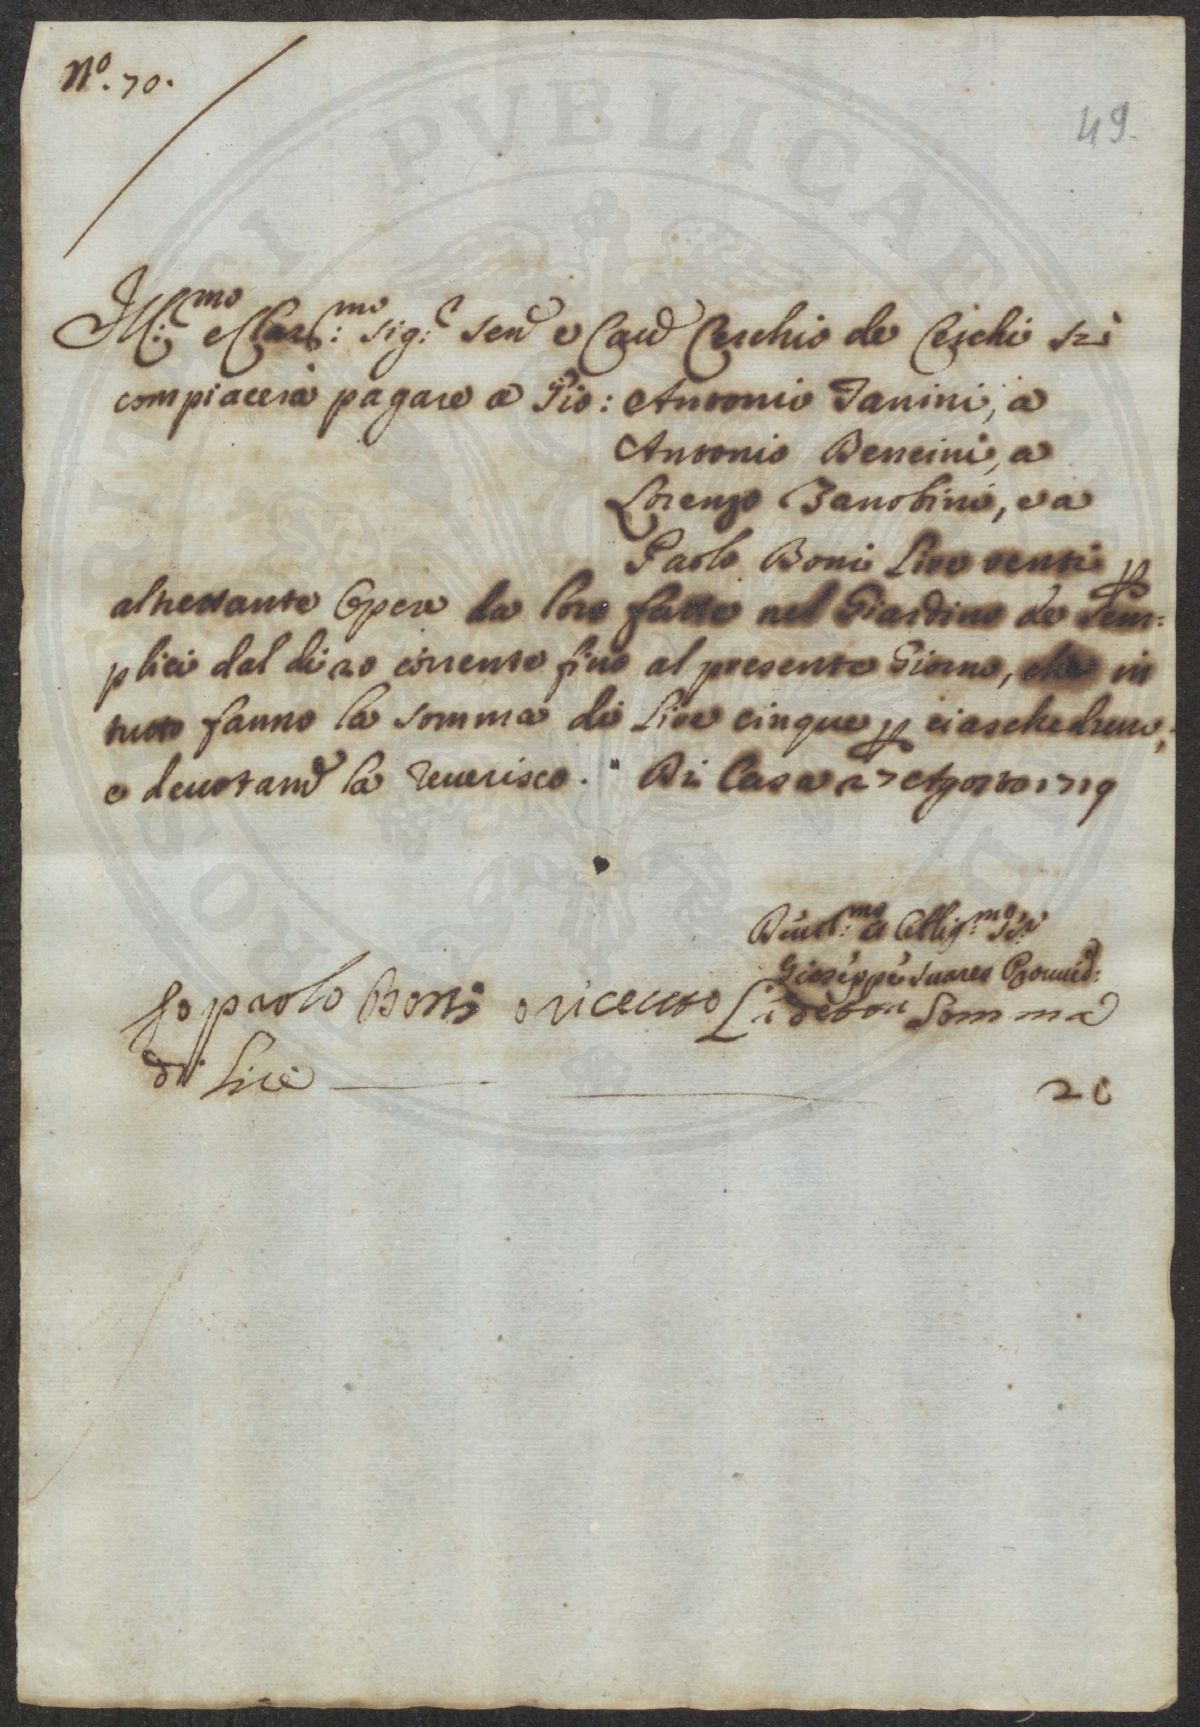 Nº. 70.
49.
Ill:mo e Clar:mo Sig:r Send e Cavd Cerchio de Cerchi si
compiacerà pagare a Gio: Antonio Janini, a
Antonio Bencini, a
Lorenzo Zanobini, e a
Paolo Boni Lire venti p
altrettante Opere da loro fatte nel Giardino de Sem:
plici dal di 20 corrente fino al presente Giorno, che in
tutto fanno la somma di Lire cinque p ciaschedeuno,
e devotamd la reverisco. Di Casa 27 Agosto 1719
Devot:mo et Obblig:mo Ser
Giuseppe Suares Provvid:
Io paolo Boni o riceuto Li deta Somma
di Lire 20
PVBLICAE